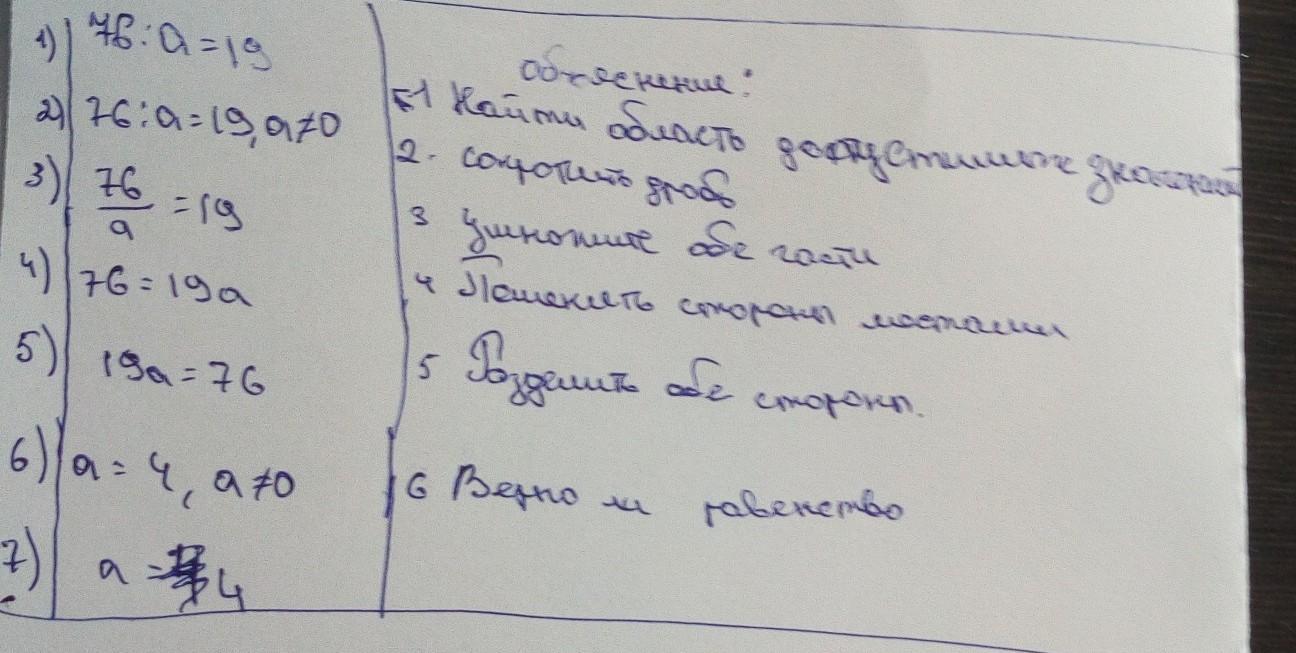 1) 76:a=19
2) 76:a=19, a≠0
3) 76/a =19
4) 76=19a
5) 19a=76
6) a=4, a≠0
7) a= 4
Объяснение:
1 Найти область допустимых значений
2. сократить дробь
3 Умножите обе части
4 Поменять стороны местами
5 Разделить обе стороны.
6 Верно ли равенство